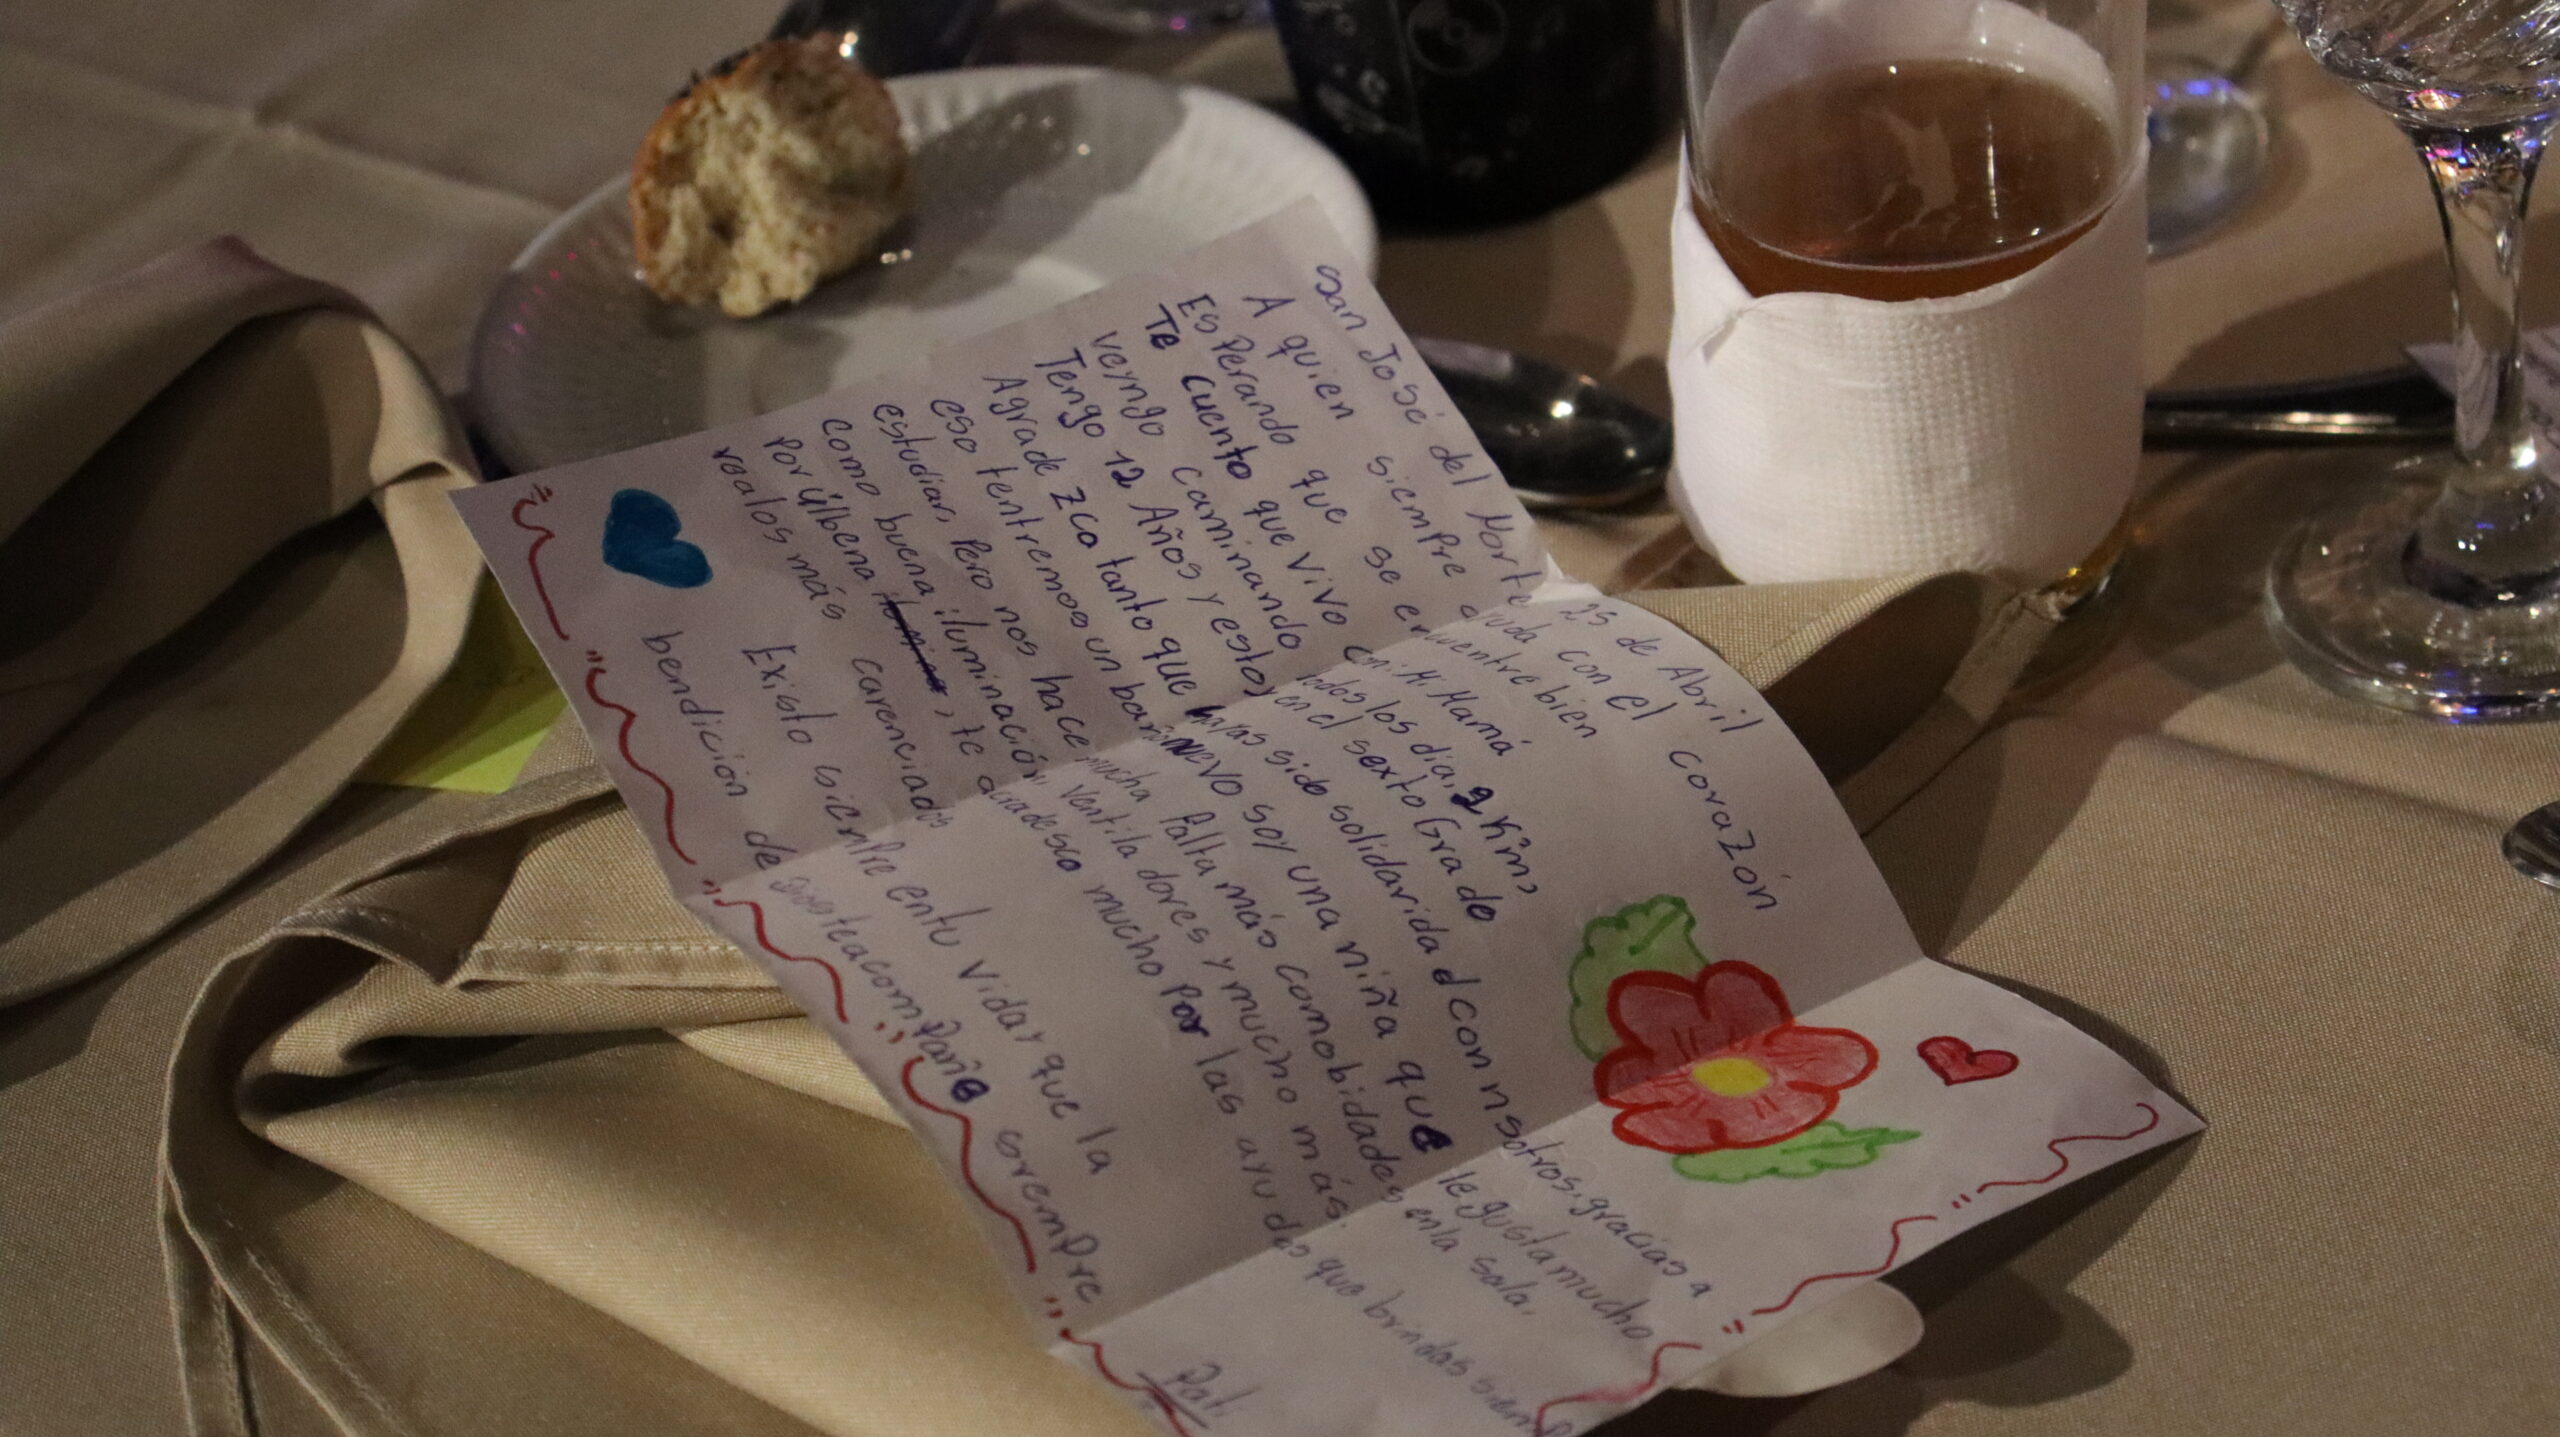 San José del Norte 25 de Abril
A quien siempre ayuda con el corazón
Esperando que se encuentre bien
Te cuento que vivo con Mi Mamá
vengo caminando todos los dia, 2 Km,
Tengo 12 Años y estoy en el sexto Grado
Agradezco tanto que hayas sido solidaridad con nsotros, gracias a
eso tentremos un baño nuevo soy una niña que le gusta mucho
estudiar, pero nos hace mucha falta más comobidades en la sala,
como buena iluminación, ventiladores y mucho más.
por úlbena, te acradesco mucho por las ayudas que brindas siemp
realos más carenciados
Existo siempre entu vida y que la
bendición de dioos teacompañe soremprre
Pati